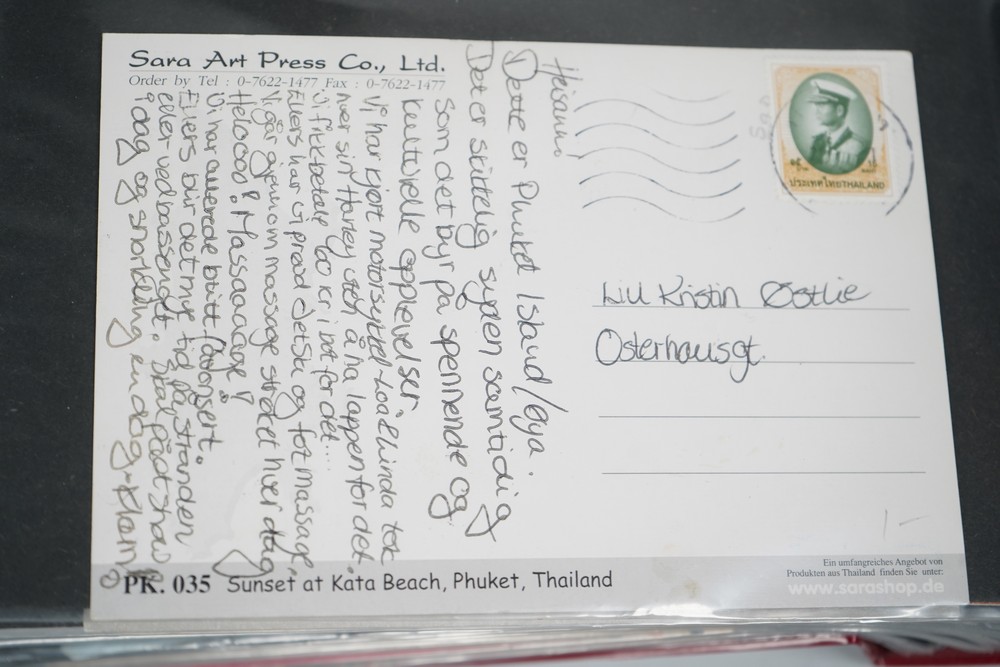 Sara Art Press Co., Ltd.
Order by Tel : 0-7622-1477 Fax : 0-7622-1477
Heisann!
Dette er Phuket Island/øya.
Det er skikkelig syden samtidig
som det byr på spennende og
kulturelle opplevelser.
Vi har kjørt motorsykkel - Loa & Linda tok
hver sin Harley uten å ha lappen for det.
Vi fikk betale 60 kr i bot for det...
Ellers har vi prøvd JetSki og fotmassage,
Vi går gjennom massage strøket hver dag
Heloooo! Massaaaage!!
Vi har allerede blitt
Ellers blir det mye tid på stranden
eller ved bassenget. Skal på showe
idag og snorkling en dag - Klem
ประเทศไทย THAILAND
Lill Kristin Østlie
Osterhausgt.
1-
PK. 035 Sunset at Kata Beach, Phuket, Thailand
Ein umfangreiches Angebot von
Produkten aus Thailand finden Sie unter:
www.sarashop.de